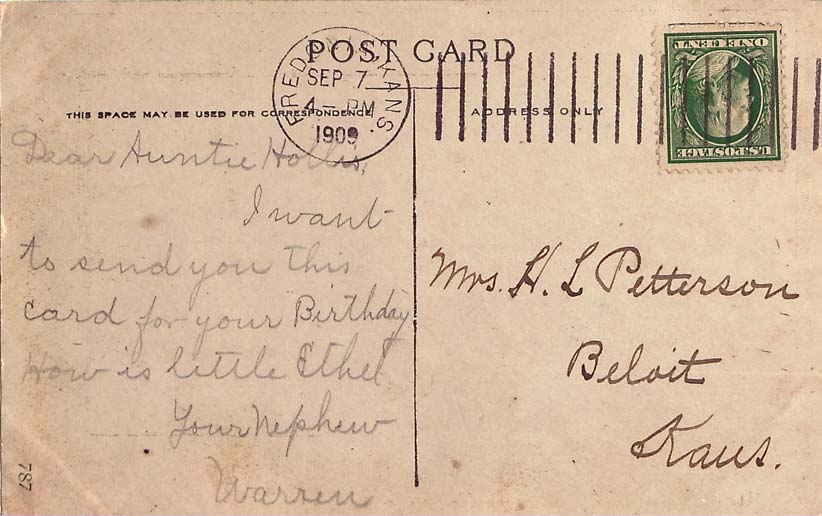 POST CARD
FREDONIA, KANS.
SEP 7
4 - PM
1909
ONE CENT
U.S. POSTAGE
THIS SPACE MAY BE USED FOR CORRESPONDENCE
ADDRESS ONLY
Dear Auntie Hollis,
I want
to send you this
card for your Birthday
How is little Ethel
Your Nephew
Warren
Mrs. H. L Petterson
Beloit
Kans.
787